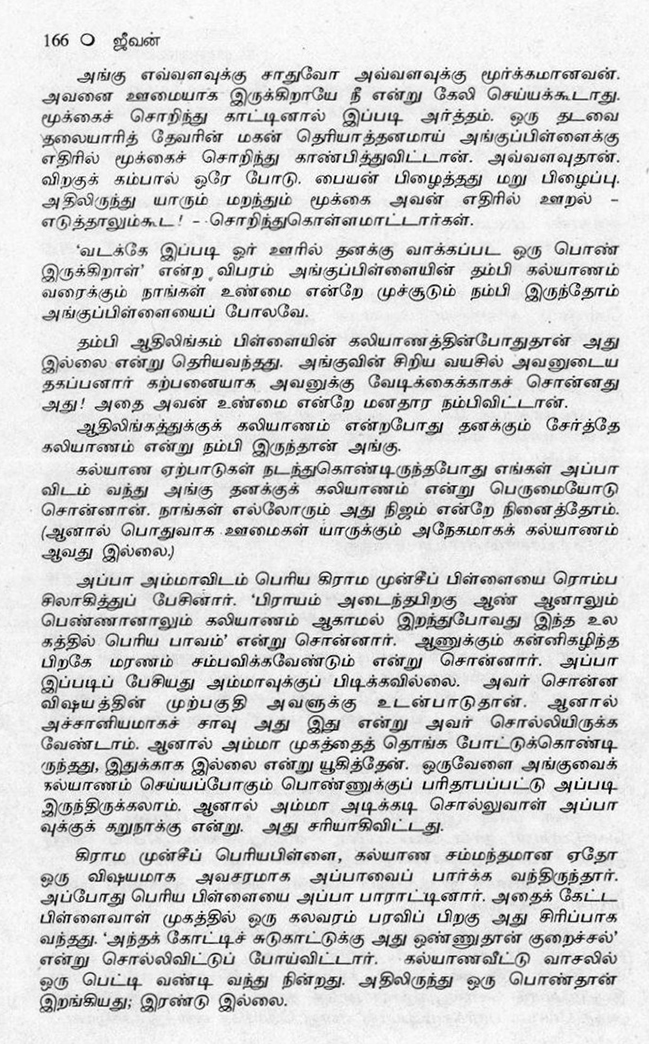 166 ❍ ஜீவன்
அங்கு எவ்வளவுக்கு சாதுவோ அவ்வளவுக்கு மூர்க்கமானவன்.
அவனை ஊமையாக இருக்கிறாயே நீ என்று கேலி செய்யக்கூடாது.
மூக்கைச் சொறிந்து காட்டினால் இப்படி அர்த்தம். ஒரு தடவை
தலையாரித் தேவரின் மகன் தெரியாத்தனமாய் அங்குப்பிள்ளைக்கு
எதிரில் மூக்கைச் சொறிந்து காண்பித்துவிட்டான். அவ்வளவுதான்.
விறகுக் கம்பால் ஒரே போடு. பையன் பிழைத்தது மறு பிழைப்பு.
அதிலிருந்து யாரும் மறந்தும் மூக்கை அவன் எதிரில் ஊறல் –
எடுத்தாலும்கூட! – சொறிந்துகொள்ளமாட்டார்கள்.
‘வடக்கே இப்படி ஓர் ஊரில் தனக்கு வாக்கப்பட ஒரு பொண்
இருக்கிறாள்’ என்ற விபரம் அங்குப்பிள்ளையின் தம்பி கல்யாணம்
வரைக்கும் நாங்கள் உண்மை என்றே முச்சூடும் நம்பி இருந்தோம்
அங்குப்பிள்ளையைப் போலவே.
தம்பி ஆதிலிங்கம் பிள்ளையின் கலியாணத்தின்போதுதான் அது
இல்லை என்று தெரியவந்தது. அங்குவின் சிறிய வயசில் அவனுடைய
தகப்பனார் கற்பனையாக அவனுக்கு வேடிக்கைக்காகச் சொன்னது
அது! அதை அவன் உண்மை என்றே மனதார நம்பிவிட்டான்.
ஆதிலிங்கத்துக்குக் கலியாணம் என்றபோது தனக்கும் சேர்த்தே
கலியாணம் என்று நம்பி இருந்தான் அங்கு.
கல்யாண ஏற்பாடுகள் நடந்துகொண்டிருந்தபோது எங்கள் அப்பா
விடம் வந்து அங்கு தனக்குக் கலியாணம் என்று பெருமையோடு
சொன்னான். நாங்கள் எல்லோரும் அது நிஜம் என்றே நினைத்தோம்.
(ஆனால் பொதுவாக ஊமைகள் யாருக்கும் அநேகமாகக் கல்யாணம்
ஆவது இல்லை.)
அப்பா அம்மாவிடம் பெரிய கிராம முன்சீப் பிள்ளையை ரொம்ப
சிலாகித்துப் பேசினார். ‘பிராயம் அடைந்தபிறகு ஆண் ஆனாலும்
பெண்ணானாலும் கலியாணம் ஆகாமல் இறந்துபோவது இந்த உல
கத்தில் பெரிய பாவம்’ என்று சொன்னார். ஆணுக்கும் கன்னிகழிந்த
பிறகே மரணம் சம்பவிக்கவேண்டும் என்று சொன்னார். அப்பா
இப்படிப் பேசியது அம்மாவுக்குப் பிடிக்கவில்லை. அவர் சொன்ன
விஷயத்தின் முற்பகுதி அவளுக்கு உடன்பாடுதான். ஆனால்
அச்சானியமாகச் சாவு அது இது என்று அவர் சொல்லியிருக்க
வேண்டாம். ஆனால் அம்மா முகத்தைத் தொங்க போட்டுக்கொண்டி
ருந்தது, இதுக்காக இல்லை என்று யூகித்தேன். ஒருவேளை அங்குவைக்
கல்யாணம் செய்யப்போகும் பொண்ணுக்குப் பரிதாபப்பட்டு அப்படி
இருந்திருக்கலாம். ஆனால் அம்மா அடிக்கடி சொல்லுவாள் அப்பா
வுக்குக் கறுநாக்கு என்று. அது சரியாகிவிட்டது.
கிராம முன்சீப் பெரியபிள்ளை, கல்யாண சம்மந்தமான ஏதோ
ஒரு விஷயமாக அவசரமாக அப்பாவைப் பார்க்க வந்திருந்தார்.
அப்போது பெரிய பிள்ளையை அப்பா பாராட்டினார். அதைக் கேட்ட
பிள்ளைவாள் முகத்தில் ஒரு கலவரம் பரவிப் பிறகு அது சிரிப்பாக
வந்தது. ‘அந்தக் கோட்டிச் சுடுகாட்டுக்கு அது ஒண்ணுதான் குறைச்சல்’
என்று சொல்லிவிட்டுப் போய்விட்டார். கல்யாணவீட்டு வாசலில்
ஒரு பெட்டி வண்டி வந்து நின்றது. அதிலிருந்து ஒரு பொண்தான்
இறங்கியது; இரண்டு இல்லை.